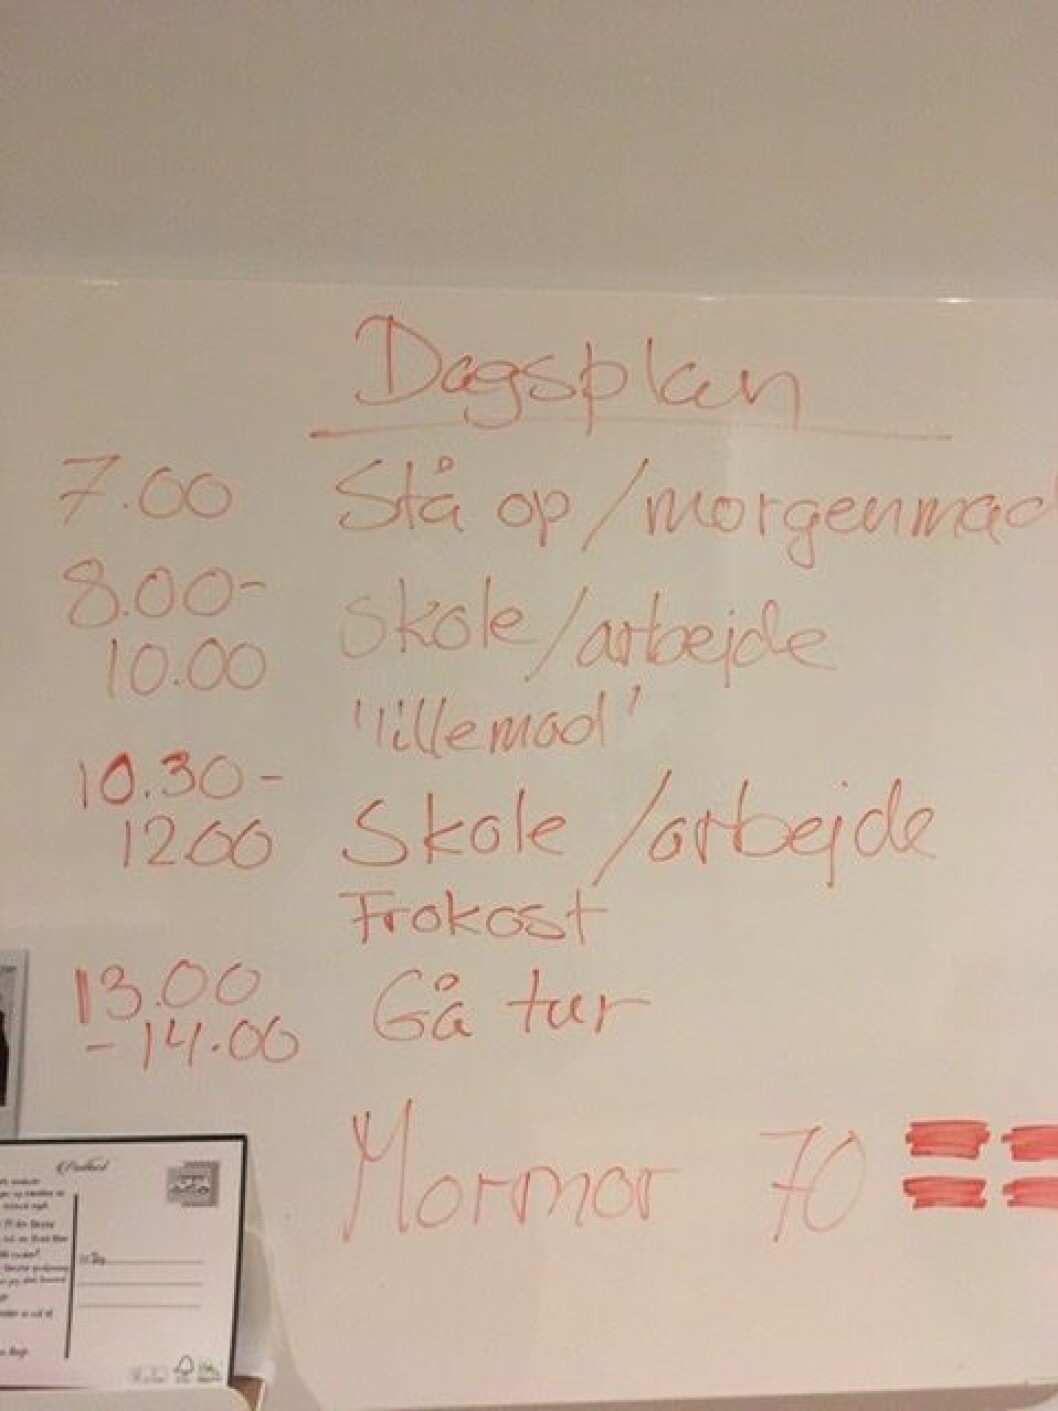 Dagsplan
7.00 Stå op/morgenmad
8.00-
10.00 Skole/arbejde
'lillemad'
10.30-
12.00 Skole/arbejde
Frokost
13.00
-14.00 Gå tur
Mormor 70